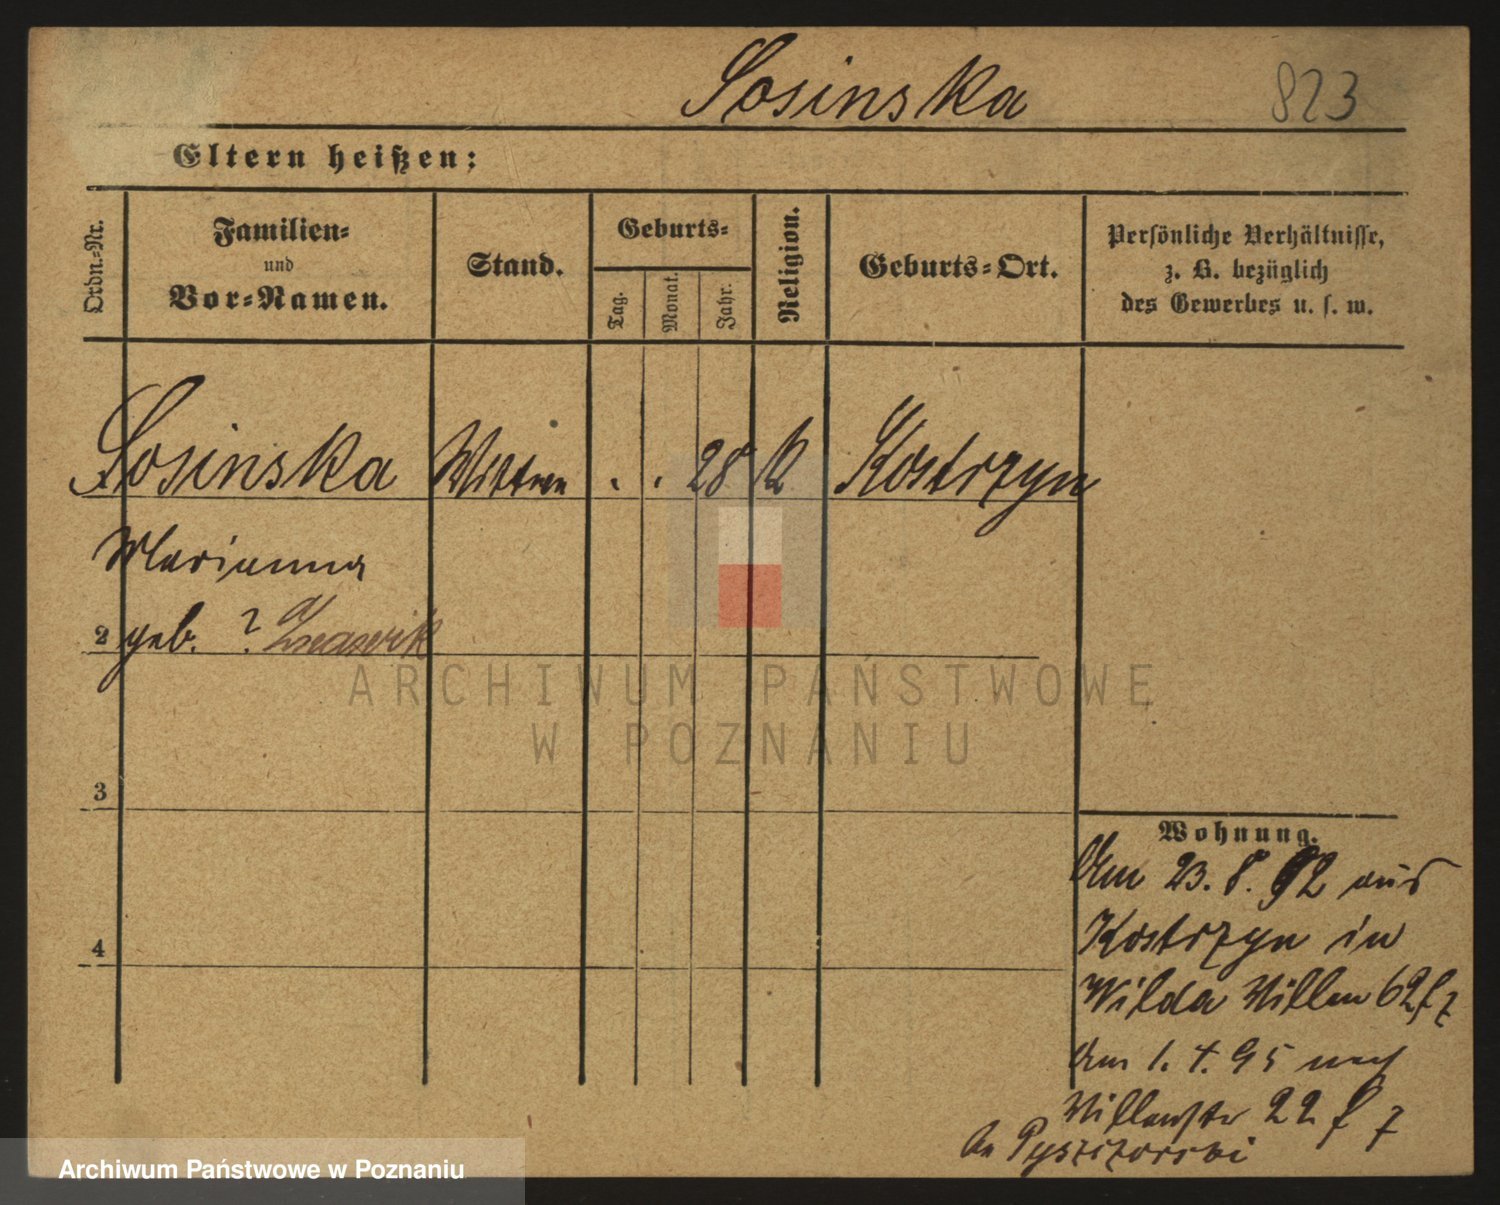 Sosinska 823
Eltern heißen:
Ordn.-Nr.
Familien-
und
Vor-Namen.
Stand.
Geburts-
Tag.
Monat.
Jahr.
Religion.
Geburts-Ort.
Persönliche Verhältnisse,
z. B. bezüglich
des Gewerbes u. s. w.
Sosinska Wittwe . . 28 K Kostrzyn
Marianna
2 geb. ?
3
4
Wohnung.
Am 23. 8. 92 aus
Kostrzyn in
Wilda Villen 62
Am 1. 4. 95 nach
Villenstr 22
ARCHIWUM PAŃSTWOWE
W POZNANIU
Archiwum Państwowe w Poznaniu